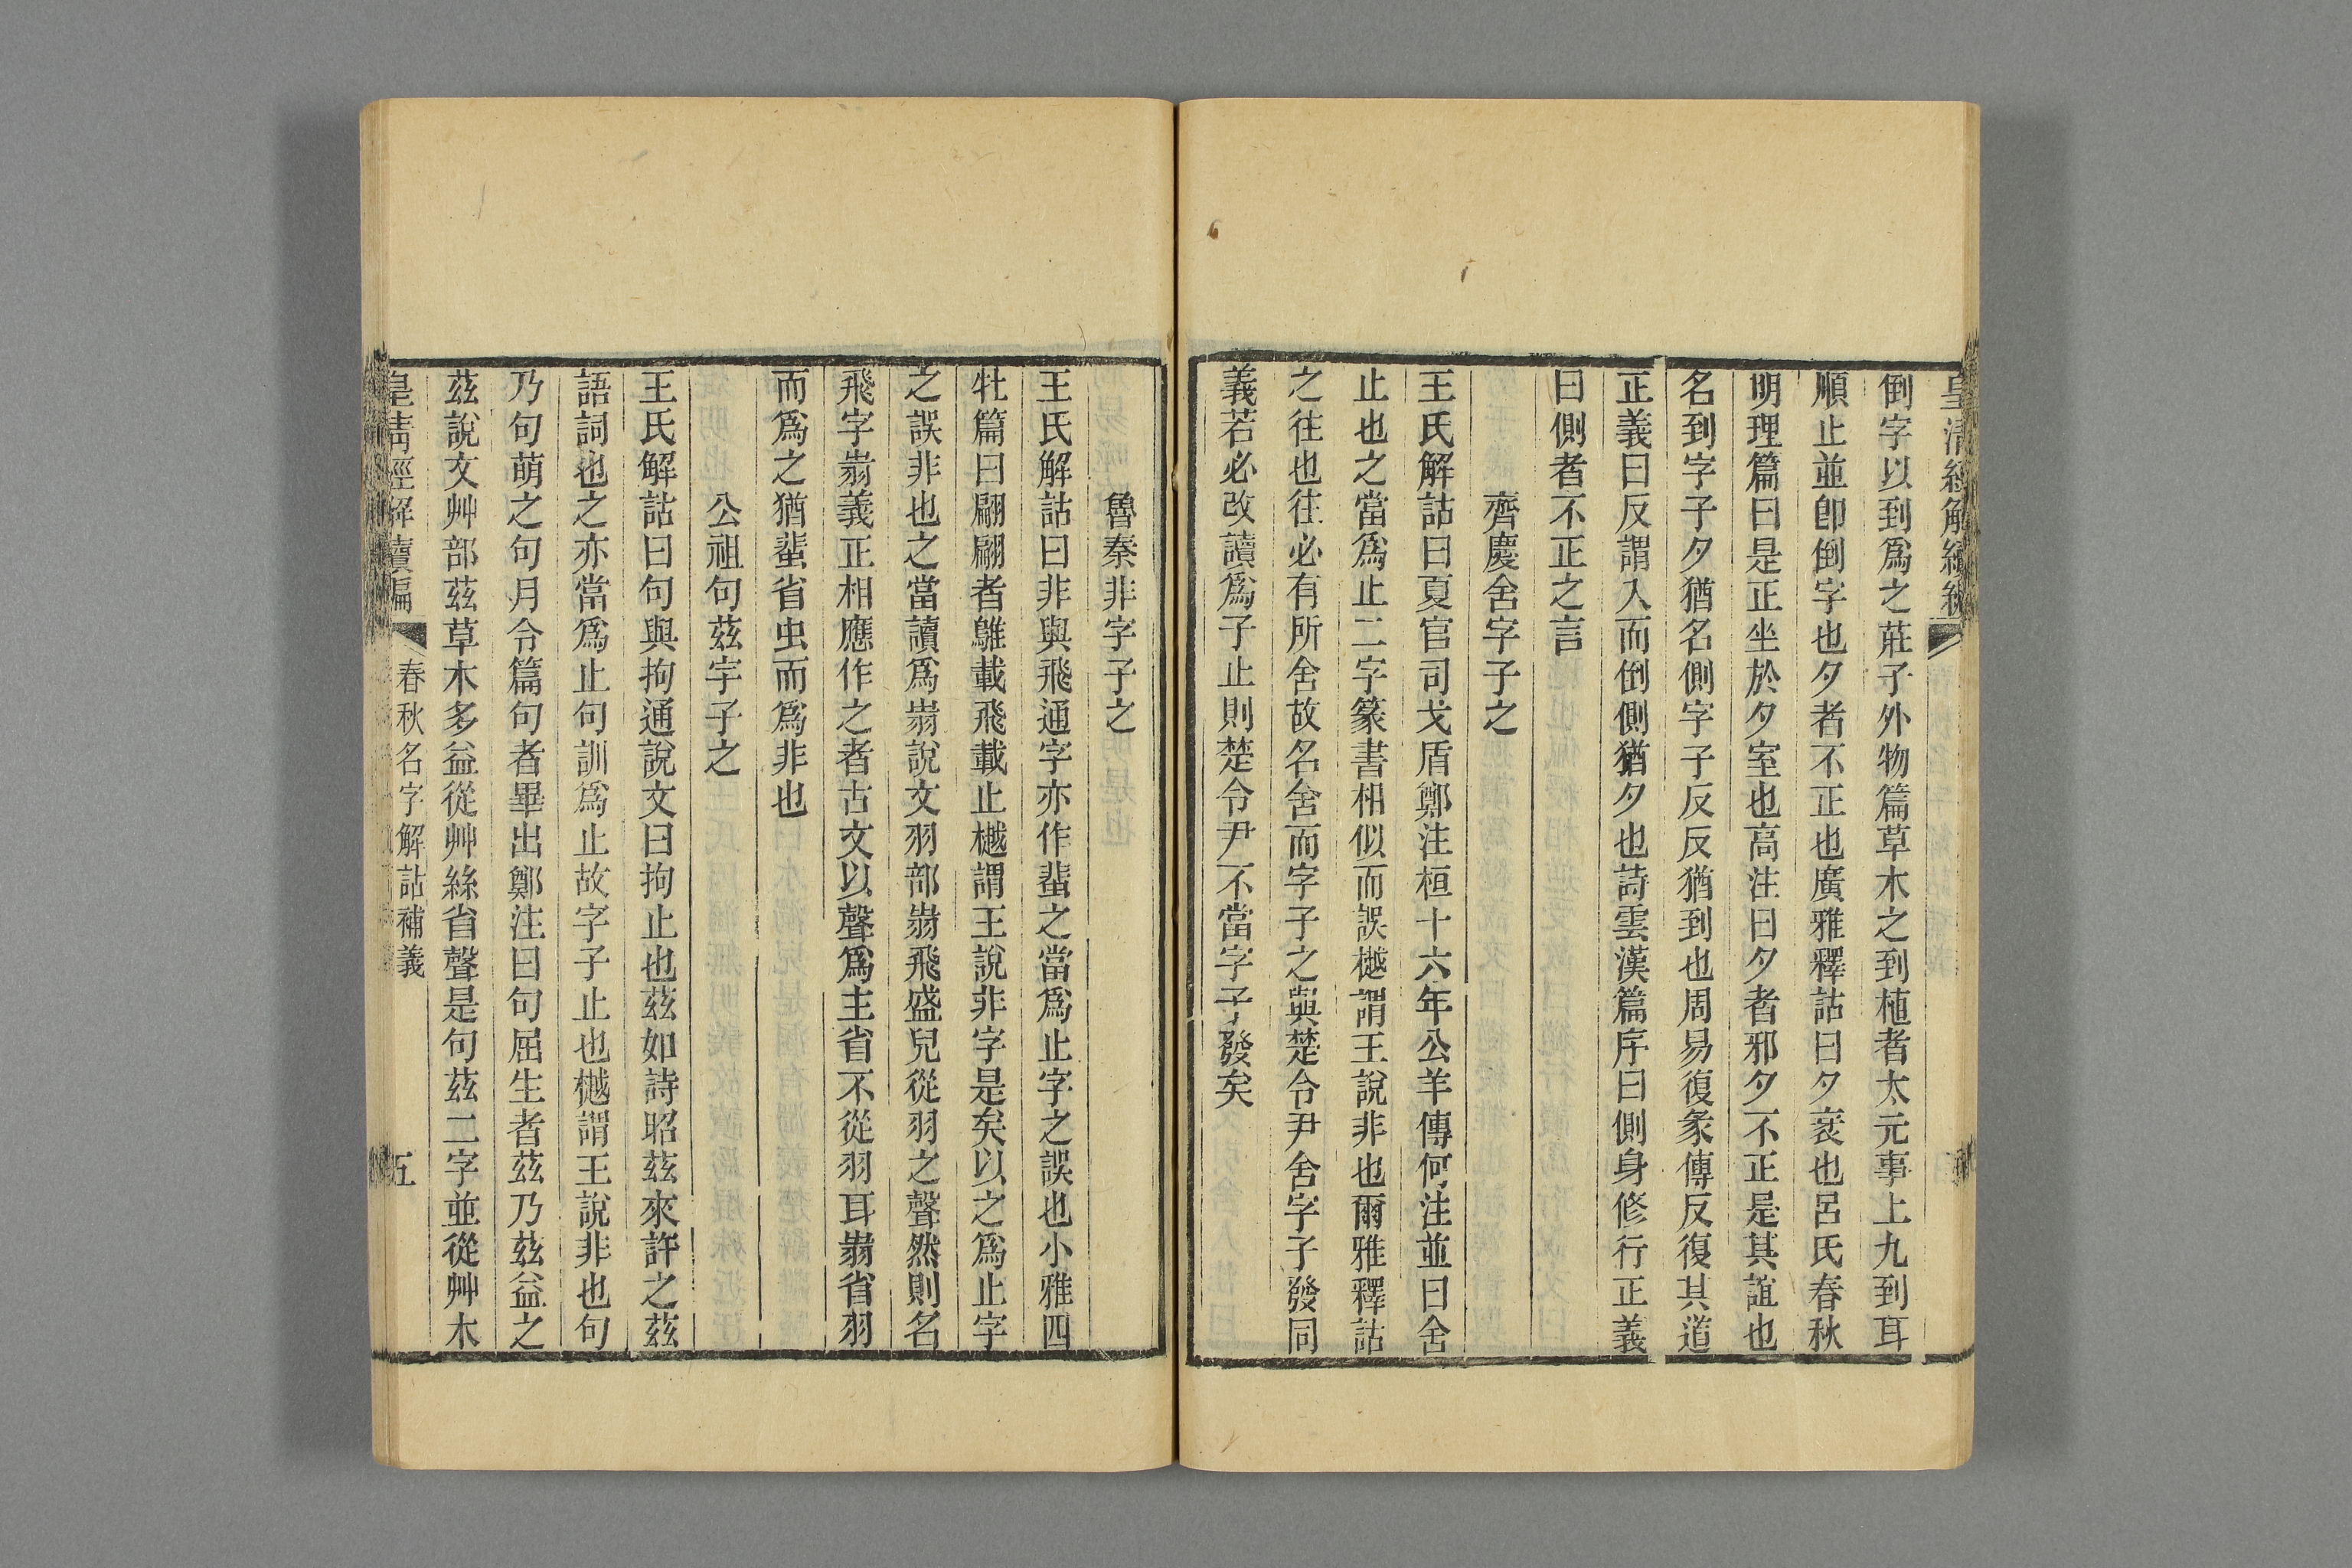 皇清經解續編
倒字以到爲之莊子外物篇草木之到植者太元事上九到耳
順止並卽倒字也夕者不正也廣雅釋詁曰夕衺也呂氏春秋
明理篇曰是正坐於夕室也高注曰夕者邪夕不正是其誼也
名到字子夕猶名側字子反反猶到也周易復彖傳反復其道
正義曰反謂入而倒側猶夕也詩雲漢篇序曰側身修行正義
曰側者不正之言
齊慶舍字子之
王氏解詁曰夏官司戈盾鄭注桓十六年公羊傳何注並曰舍
止也之當爲止二字篆書相似而誤樾謂王說非也爾雅釋詁
之往也往必有所舍故名舍而字子之與楚令尹舍字子發同
義若必改讀爲子止則楚令尹不當字子發矣
魯秦非字子之
王氏解詁曰非與飛通字亦作蜚之當爲止字之誤也小雅四
牡篇曰翩翩者鵻載飛載止樾謂王說非字是矣以之爲止字
之誤非也之當讀爲翄說文羽部翄飛盛皃從羽之聲然則名
飛字翄義正相應作之者古文以聲爲主省不從羽耳翄省羽
而爲之猶蜚省虫而爲非也
公祖句茲字子之
王氏解詁曰句與拘通說文曰拘止也茲如詩昭茲來許之茲
語詞也之亦當爲止句訓爲止故字子止也樾謂王說非也句
乃句萌之句月令篇句者畢出鄭注曰句屈生者茲乃茲益之
茲說文艸部茲草木多益從艸絲省聲是句茲二字並從艸木
皇清經解續編
春秋名字解詁補義
五